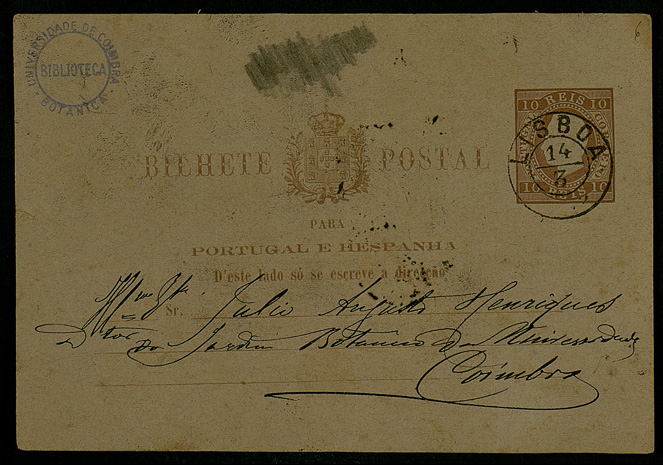 6
UNIVERSIDADE DE COIMBRA
BIBLIOTECA
BOTANICA
10 REIS 10
PORTUGAL CONTINENTE
10 REIS 10
LISBOA
14
3
BILHETE POSTAL
PARA
PORTUGAL E HESPANHA
D'este lado só se escreve a direcção
Illmo Exmo Sr. Julio Augusto Henriques
Dtor do Jardim Botanico da Universidade
Coimbra